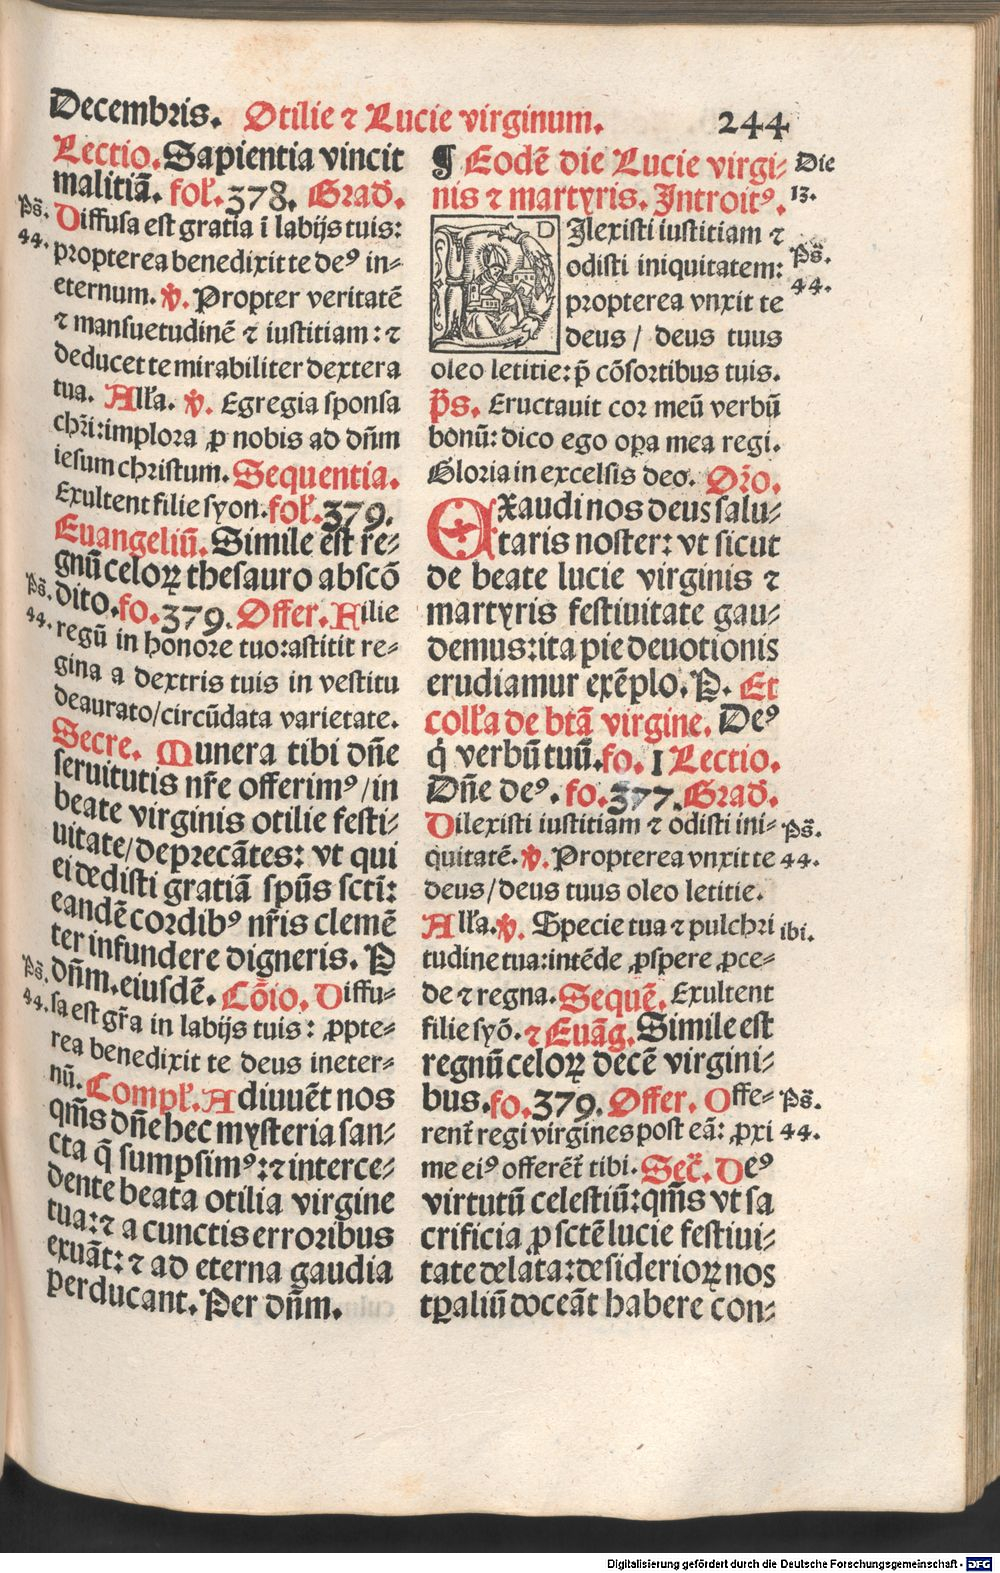 Decembris. Otilie ⁊ Lucie virginum. 244
Lectio. Sapientia vincit
malitiā. fol̄. 378. Grad̄.
Diffusa est gratia ī labijs tuis:
propterea benedixit te deꝰ in⸗
eternum. ℣. Propter veritatē
⁊ mansuetudinē ⁊ iustitiam: ⁊
deducet te mirabiliter dextera
tua. Alła. ℣. Egregia sponsa
chr̄i: implora ꝓ nobis ad dn̄m
iesum christum. Sequentia.
Exultent filie syon. fol̄. 379.
Euangeliū. Simile est re⸗
gnū celoꝝ thesauro abscō
dito. fo. 379. Offer. Filie
regū in honore tuo: astitit re⸗
gina a dextris tuis in vestitu
deaurato/circūdata varietate.
Secre. Munera tibi dn̄e
seruitutis nr̄e offerimꝰ/in
beate virginis otilie festi⸗
uitate/deprecātes: vt qui
ei dedisti gratiā spūs sctī:
eandē cordibꝰ nr̄is clemē
ter infundere digneris. P
dn̄m. eiusdē. Cōio. Diffu⸗
sa est gr̄a in labijs tuis: ꝓpte⸗
rea benedixit te deus ineter⸗
nū. Compl̄. Adiuuēt nos
qm̄s dn̄e hec mysteria san⸗
cta q̄ sumpsimꝰ: ⁊ interce⸗
dente beata otilia virgine
tua: ⁊ a cunctis erroribus
exuāt: ⁊ ad eterna gaudia
perducant. Per dn̄m.
Ps̄.
44.
Ps̄.
44.
Ps̄.
44.
¶ Eodē die Lucie virgi⸗
nis ⁊ martyris. Introitꝰ.
D
Ilexisti iustitiam ⁊
odisti iniquitatem:
propterea vnxit te
deus / deus tuus
oleo letitie: p̄ cōsortibus tuis.
Ps̄. Eructauit cor meū verbū
bonū: dico ego oꝑa mea regi.
Gloria in excelsis deo. Or̄o.
Exaudi nos deus salu⸗
taris noster: vt sicut
de beate lucie virginis ⁊
martyris festiuitate gau⸗
demus: ita pie deuotionis
erudiamur exēplo. P. Et
coll̄a de btā virgine. Deꝰ
q̇ verbū tuū. fo. 1 Lectio.
Dn̄e deꝰ. fo. 377. Grad̄.
Dilexisti iustitiam ⁊ odisti ini⸗
quitatē. ℣. Propterea vnxit te
deus/deus tuus oleo letitie.
Alła. ℣. Specie tua ⁊ pulchri
tudine tua: intēde ꝓspere ꝓce⸗
de ⁊ regna. Sequē. Exultent
filie syō. ⁊ Euāg. Simile est
regnū celoꝝ decē virgini⸗
bus. fo. 379. Offer. Offe⸗
rent̄ regi virgines post eā: ꝓxi
me eiꝰ offerēt̄ tibi. Sec̄. Deꝰ
virtutū celestiū: qm̄s vt sa
crificia ꝓ sctē lucie festiui⸗
tate delata: desiderioꝝ nos
tꝑaliū doceāt habere con⸗
Die
13.
Ps̄.
44.
Ps̄.
44.
ibi.
Ps̄.
44.
Digitalisierung gefördert durch die Deutsche Forschungsgemeinschaft - DFG